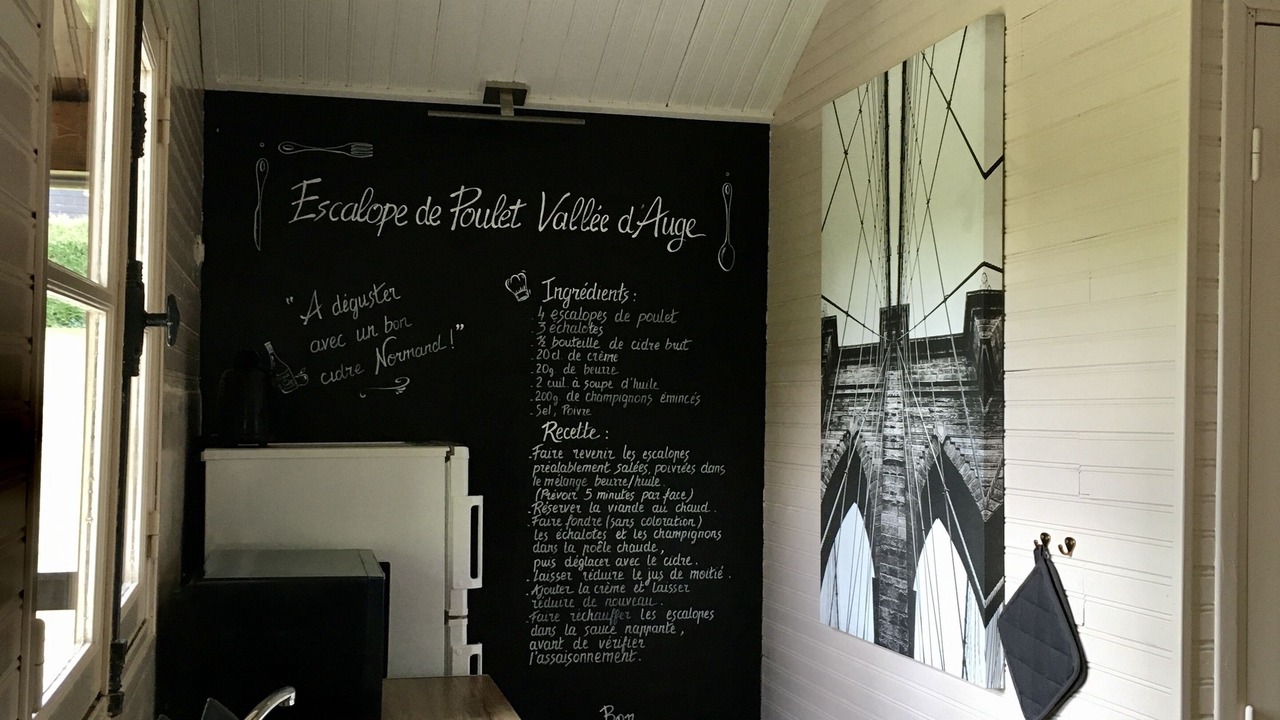 Escalope de Poulet Vallée d'Auge
"A déguster
avec un bon
cidre Normand!"
Ingrédients:
- 4 escalopes de poulet
- 3 échalotes
- ½ bouteille de cidre brut
- 20cl. de crème
- 20g. de beurre
- 2 cuil à soupe d'huile
- 200g. de champignons émincés
- Sel, Poivre
Recette:
- Faire revenir les escalopes
préalablement salées, poivrées dans
le mélange beurre/huile.
(Prévoir 5 minutes par face)
- Réserver la viande au chaud.
- Faire fondre (sans coloration)
les échalotes et les champignons
dans la poêle chaude,
puis déglacer avec le cidre.
- Laisser réduire le jus de moitié.
- Ajouter la crème et laisser
réduire de nouveau.
- Faire réchauffer les escalopes
dans la sauce nappante,
avant de vérifier
l'assaisonnement.
Bon